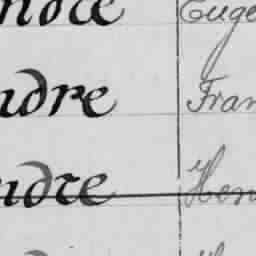 ndre Euge
ndre Fran
ndre Hen